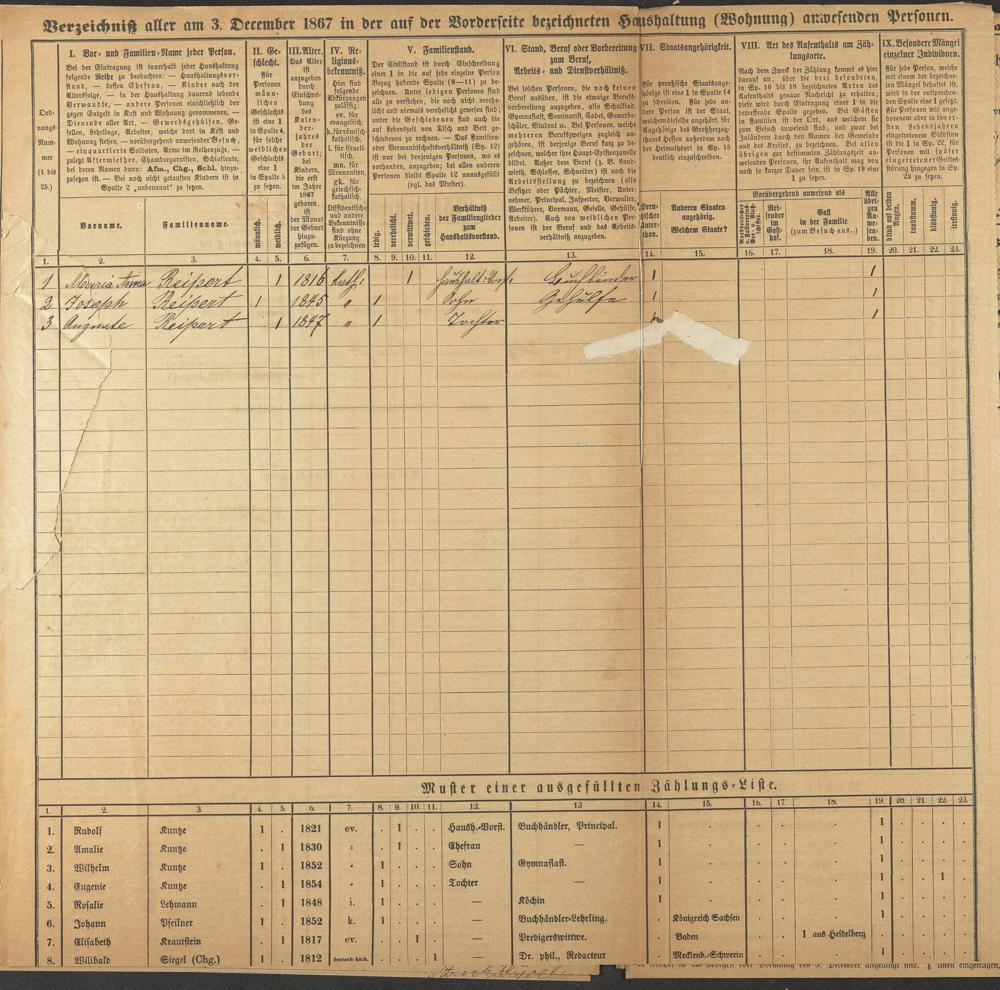 Verzeichniß aller am 3. December 1867 in der auf der Vorderseite bezeichneten Haushaltung (Wohnung) anwesenden Personen.
I. Vor- und Familien-Name jeder Person.
Bei der Eintragung ist innerhalb jeder Haushaltung
folgende Reihe zu beobachten: — Haushaltungsvor-
stand, — dessen Ehefrau, — Kinder nach der
Altersfolge, — in der Haushaltung dauernd lebende
Verwandte, — andere Personen einschließlich der
gegen Entgelt in Kost und Wohnung genommenen, —
Dienende aller Art, — Gewerbsgehülfen, Ge-
sellen, Lehrlinge, Arbeiter, welche dort in Kost und
Wohnung stehen, — vorübergehend anwesender Besuch,
— einquartierte Soldaten, Arme im Reihenzuge. —
zuletzt Aftermiether, Chambregarnisten, Schlafleute,
bei deren Namen dann: Afm., Chg., Schl. hinzu-
zusetzen ist. — Bei noch nicht getauften Kindern ist in
Spalte 2 „unbenannt" zu setzen.
Ord-
nungs-
Num-
mer
(1 bis
25.)
Vorname.
Familienname.
II. Ge-
schlecht.
Für
männ-
lichen
Geschlechts
ist eine 1
in Spalte 4,
für solche
weiblichen
Geschlechts
eine 1
in Spalte 5
zu setzen.
männlich.
weiblich.
III. Alter.
Das Alter
ist
anzugeben
durch
Einschrei-
bung
des
Kalen-
der-
jahres
der
Geburt;
bei
Kindern,
die erst
im Jahre
1867
geboren,
ist
der Monat
der Geburt
hinzu-
zufügen.
IV. Re-
ligions-
bekenntniß.
Hier sind
folgende
Abkürzungen
zulässig:
ev. für
evangelisch,
k. für römisch-
katholisch,
i. für israeli-
tisch,
mn. für
Mennoniten,
gk. für
griechisch-
katholisch.
Dissidentische
und andere
Bekenntnisse
sind ohne
Kürzung
zu bezeichnen.
V. Familienstand.
Der Civilstand ist durch Einschreibung
einer 1 in die auf jede einzelne Person
Bezug habende Spalte (8—11) zu be-
zeichnen. Unter ledigen Personen sind
alle zu verstehen, die noch nicht verehe-
licht und niemals verehelicht gewesen sind;
unter die Geschiedenen sind auch die
auf Lebenszeit von Tisch und Bett ge-
schiedenen zu rechnen. — Das Familien-
oder Verwandtschaftsverhältniß (Sp. 12)
ist nur bei denjenigen Personen, wo es
vorhanden, anzugeben; bei allen anderen
Personen bleibt Spalte 12 unausgefüllt
(vgl. das Muster).
ledig.
verehelicht.
verwittwet.
geschieden.
Verhältniß
der Familienglieder
zum
Haushaltsvorstand.
VI. Stand, Beruf oder Vorbereitung
zum Beruf,
Arbeits- und Dienstverhältniß.
Bei solchen Personen, die noch keinen
Beruf ausüben, ist die etwaige Berufs-
vorbereitung anzugeben, also Schulkind,
Gymnasiast, Seminarist, Cadet, Gewerbe-
schüler, Student ꝛc. Bei Personen, welche
mehreren Berufszweigen zugleich an-
gehören, ist derjenige Beruf kurz zu be-
zeichnen, welcher ihre Haupt-Existenzquelle
bildet. Außer dem Beruf (z. B. Land-
wirth, Schlosser, Schneider) ist noch die
Arbeitsstellung zu bezeichnen (also
Besitzer oder Pächter, Meister, Unter-
nehmer, Principal, Inspector, Verwalter,
Werkführer, Vormann, Geselle, Gehülfe,
Arbeiter). Auch von weiblichen Per-
sonen ist der Beruf und das Arbeits-
verhältniß anzugeben.
VII. Staatsangehörigkeit.
Für preußische Staatsange-
hörige ist eine 1 in Spalte 14
zu schreiben. Für jede an-
dere Person ist der Staat,
welchem dieselbe angehört, für
Angehörige des Großherzog-
thums Hessen außerdem noch
der Heimathsort in Sp. 15
deutlich einzuschreiben.
Preu-
ßischer
Unter-
thanen.
Anderen Staaten
angehörig.
Welchem Staate?
VIII. Art des Aufenthalts am Zäh-
lungsorte.
Nach dem Zweck der Zählung kommt es hier
darauf an, über die drei besonderen,
in Sp. 16 bis 18 bezeichneten Arten des
Aufenthalts genaue Nachricht zu erhalten;
diese wird durch Eintragung einer 1 in die
betreffende Spalte gegeben. Bei Gästen
in Familien ist der Ort, aus welchem sie
zum Besuch anwesend sind, und zwar bei
Inländern durch den Namen der Gemeinde
und des Kreises, zu bezeichnen. Bei allen
übrigen zur bestimmten Zählungszeit an-
wesenden Personen, ihr Aufenthalt mag von
noch so kurzer Dauer sein, ist in Sp. 19 eine
1 zu setzen.
Vorübergehend anwesend als
Rei-
sender
im
Gast-
hof.
Gast
in der Familie
(zum Besuch aus..)
Alle
übri-
gen
An-
we-
sen-
den.
IX. Besondere Mängel
einzelner Individuen.
Für jede Person, welche
mit einem der bezeichne-
ten Mängel behaftet ist,
wird in der entsprechen-
den Spalte eine 1 gesetzt.
Für Personen mit ange-
borenem oder in den er-
sten Lebensjahren
eingetretenem Blödsinn
ist die 1 in Sp. 22, für
Personen mit später
eingetretener Geistes-
störung hingegen in Sp.
23 zu setzen.
blind auf beiden
Augen.
taubstumm.
blödsinnig.
irrsinnig.
1. 2. 3. 4. 5. 6. 7. 8. 9. 10. 11. 12. 13. 14. 15. 16. 17. 18. 19. 20. 21. 22. 23.
1 Maria Anna Reissert 1 1816 kath: 1 Haushalt:Vorst. Buchbinder 1 1
2 Joseph Reissert 1 1845 " 1 Sohn Gehülfe 1 1
3 Auguste Reissert 1 1847 " 1 Tochter 1 1
Muster einer ausgefüllten Zählungs-Liste.
1. 2. 3. 4. 5. 6. 7. 8. 9. 10. 11. 12. 13 14. 15. 16. 17. 18. 19. 20. 21. 22. 23.
1. Rudolf Kuntze 1 . 1821 ev. . 1 . . Haush.-Vorst. Buchhändler, Principal. 1 . . . . 1 . . . .
2. Amalie Kuntze . 1 1830 " . 1 . . Ehefrau — 1 . . . . 1 . . . .
3. Wilhelm Kuntze 1 . 1852 " 1 . . . Sohn Gymnasiast. 1 . . . . 1 . . . .
4. Eugenie Kuntze . 1 1854 " 1 . . . Tochter — 1 . . . . 1 . . 1 .
5. Rosalie Lehmann . 1 1848 i. 1 . . . — Köchin 1 . . . . 1 . . . .
6. Johann Pfeilner 1 . 1852 k. 1 . . . — Buchhändler-Lehrling. . Königreich Sachsen . . . 1 . . . .
7. Elisabeth Krautstein . 1 1817 ev. . . 1 . — Predigerswittwe. . Baden . . 1 aus Heidelberg . . . . .
8. Wilibald Siegel (Chg.) 1 . 1812 deutsch-kath. . . . 1 — Dr. phil., Redacteur . Mecklenb.-Schwerin . . . 1 . . . .